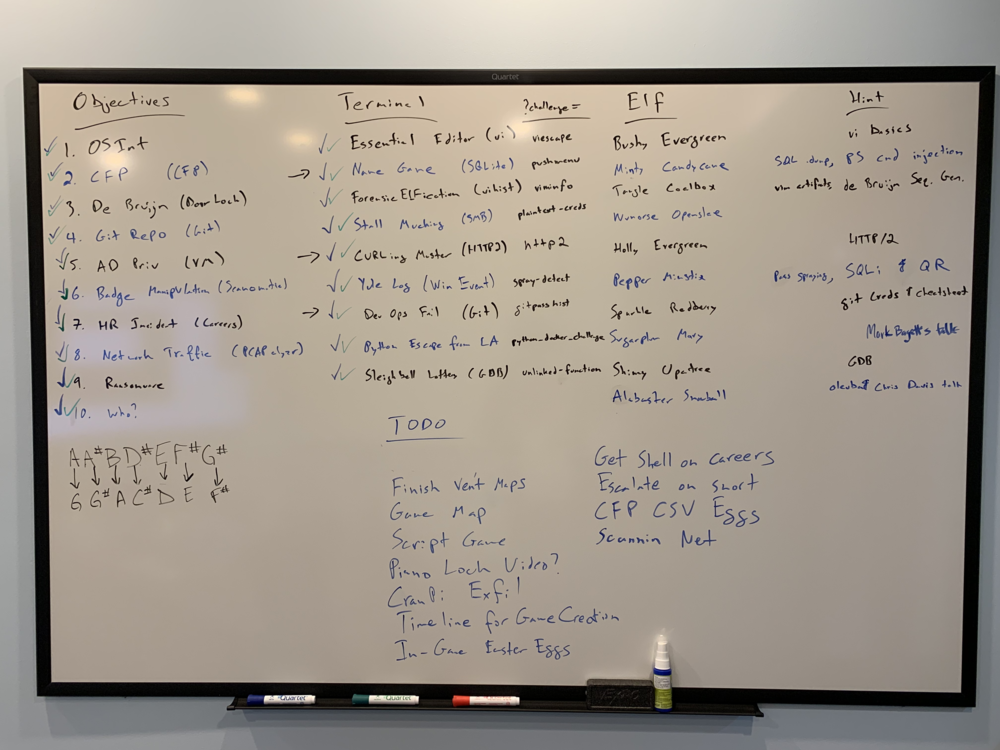 Quartet
Objectives
1. OSInt
2. CFP (CFP)
3. De Bruijn (Door Lock)
4. Git Repo (Git)
5. AD Priv (VM)
6. Badge Manipulation (Scanomatic)
7. HR Incident (Careers)
8. Network Traffic (PCAPalyzer)
9. Ransomware
10. Who?
A A# B D# E F# G#
G G# A C# D E F#
Terminal ?challenge=
Essential Editor (vi) viescape
Name Game (SQLite) pushmenu
Forensic ELFication (vihist) viminfo
Stall Mucking (SMB) plaintext-creds
CURLing Master (HTTP2) http2
Yule Log (Win Event) spray-detect
Dev Ops Fail (Git) gitpasshist
Python Escape from LA python_docker_challenge
Sleighbell Lotter (GDB) unlinked-function
Elf
Bushy Evergreen
Minty Candycane
Tangle Coalbox
Wunorse Openslae
Holly Evergreen
Pepper Minstix
Sparkle Redberry
Sugarplum Mary
Shinny Upatree
Alabaster Snowball
Hint
vi basics
SQL dump, PS cmd injection
vim artifacts de Bruijn Seq. Gen.
HTTP/2
Pass spraying, SQLi & QR
git creds & cheatsheet
Mark Baggett's talk
GDB
Chris Davis talk
TODO
Finish Vent Maps
Game Map
Script Game
Piano Lock Video?
CranPi Exfil
Timeline for Game Creation
In-Game Easter Eggs
Get Shell on careers
Escalate on snort
CFP CSV Eggs
Scannin Net
Quartet
Quartet